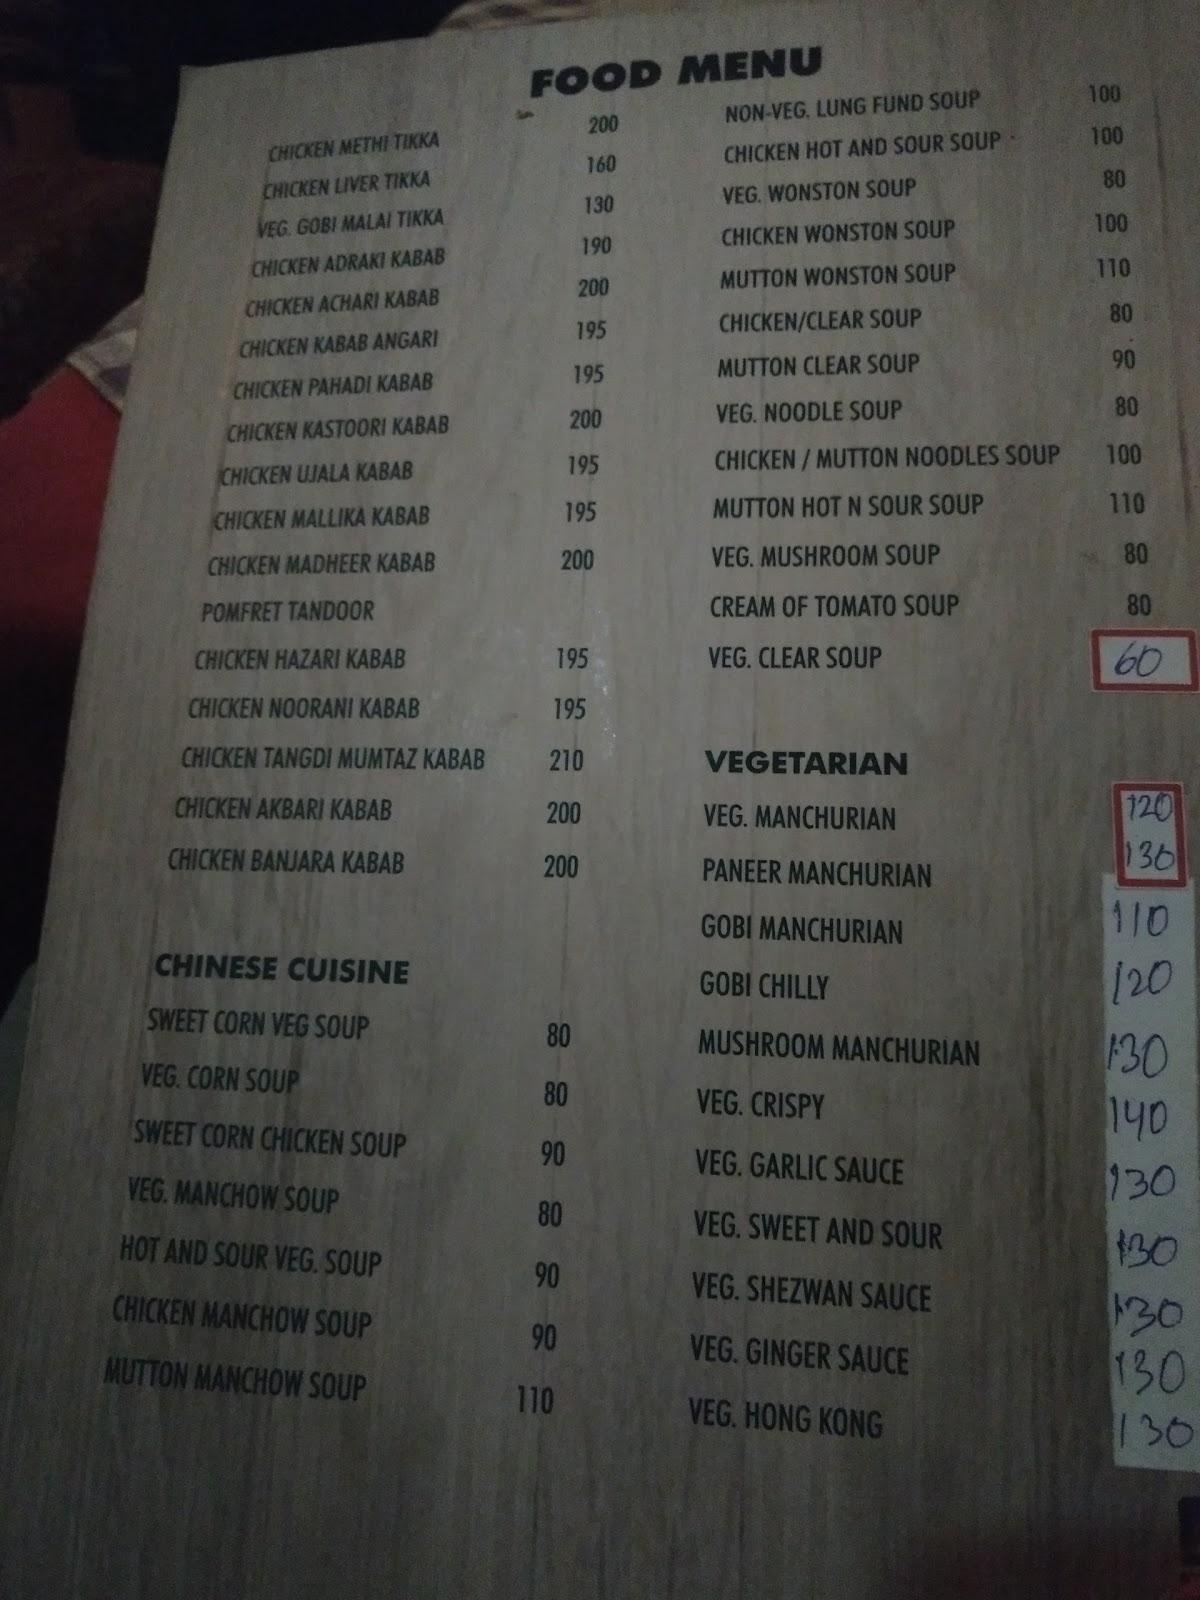 FOOD MENU
CHICKEN METHI TIKKA 200
CHICKEN LIVER TIKKA 160
VEG. GOBI MALAI TIKKA 130
CHICKEN ADRAKI KABAB 190
CHICKEN ACHARI KABAB 200
CHICKEN KABAB ANGARI 195
CHICKEN PAHADI KABAB 195
CHICKEN KASTOORI KABAB 200
CHICKEN UJALA KABAB 195
CHICKEN MALLIKA KABAB 195
CHICKEN MADHEER KABAB 200
POMFRET TANDOOR
CHICKEN HAZARI KABAB 195
CHICKEN NOORANI KABAB 195
CHICKEN TANGDI MUMTAZ KABAB 210
CHICKEN AKBARI KABAB 200
CHICKEN BANJARA KABAB 200
CHINESE CUISINE
SWEET CORN VEG SOUP 80
VEG. CORN SOUP 80
SWEET CORN CHICKEN SOUP 90
VEG. MANCHOW SOUP 80
HOT AND SOUR VEG. SOUP 90
CHICKEN MANCHOW SOUP 90
MUTTON MANCHOW SOUP 110
NON-VEG. LUNG FUND SOUP 100
CHICKEN HOT AND SOUR SOUP 100
VEG. WONSTON SOUP 80
CHICKEN WONSTON SOUP 100
MUTTON WONSTON SOUP 110
CHICKEN/CLEAR SOUP 80
MUTTON CLEAR SOUP 90
VEG. NOODLE SOUP 80
CHICKEN / MUTTON NOODLES SOUP 100
MUTTON HOT N SOUR SOUP 110
VEG. MUSHROOM SOUP 80
CREAM OF TOMATO SOUP 80
VEG. CLEAR SOUP 60
VEGETARIAN
VEG. MANCHURIAN 120
PANEER MANCHURIAN 130
GOBI MANCHURIAN 110
GOBI CHILLY 120
MUSHROOM MANCHURIAN 130
VEG. CRISPY 140
VEG. GARLIC SAUCE 130
VEG. SWEET AND SOUR 130
VEG. SHEZWAN SAUCE 130
VEG. GINGER SAUCE 130
VEG. HONG KONG 130